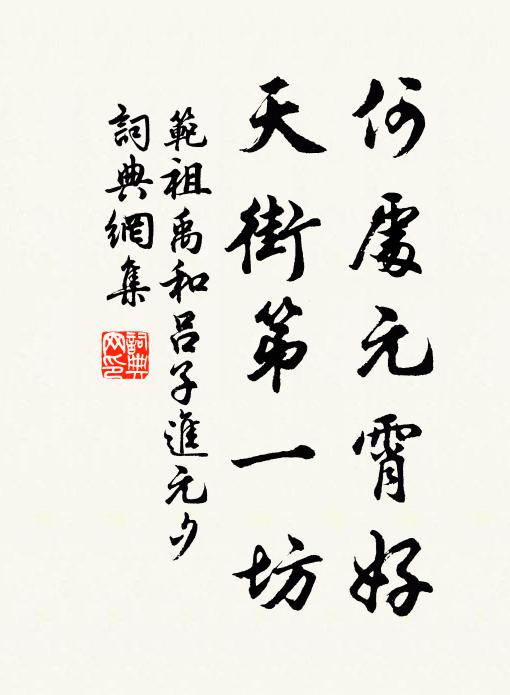 何處元霄好
天街第一坊
範祖禹和呂子進元夕
詞典網集
詞典網印